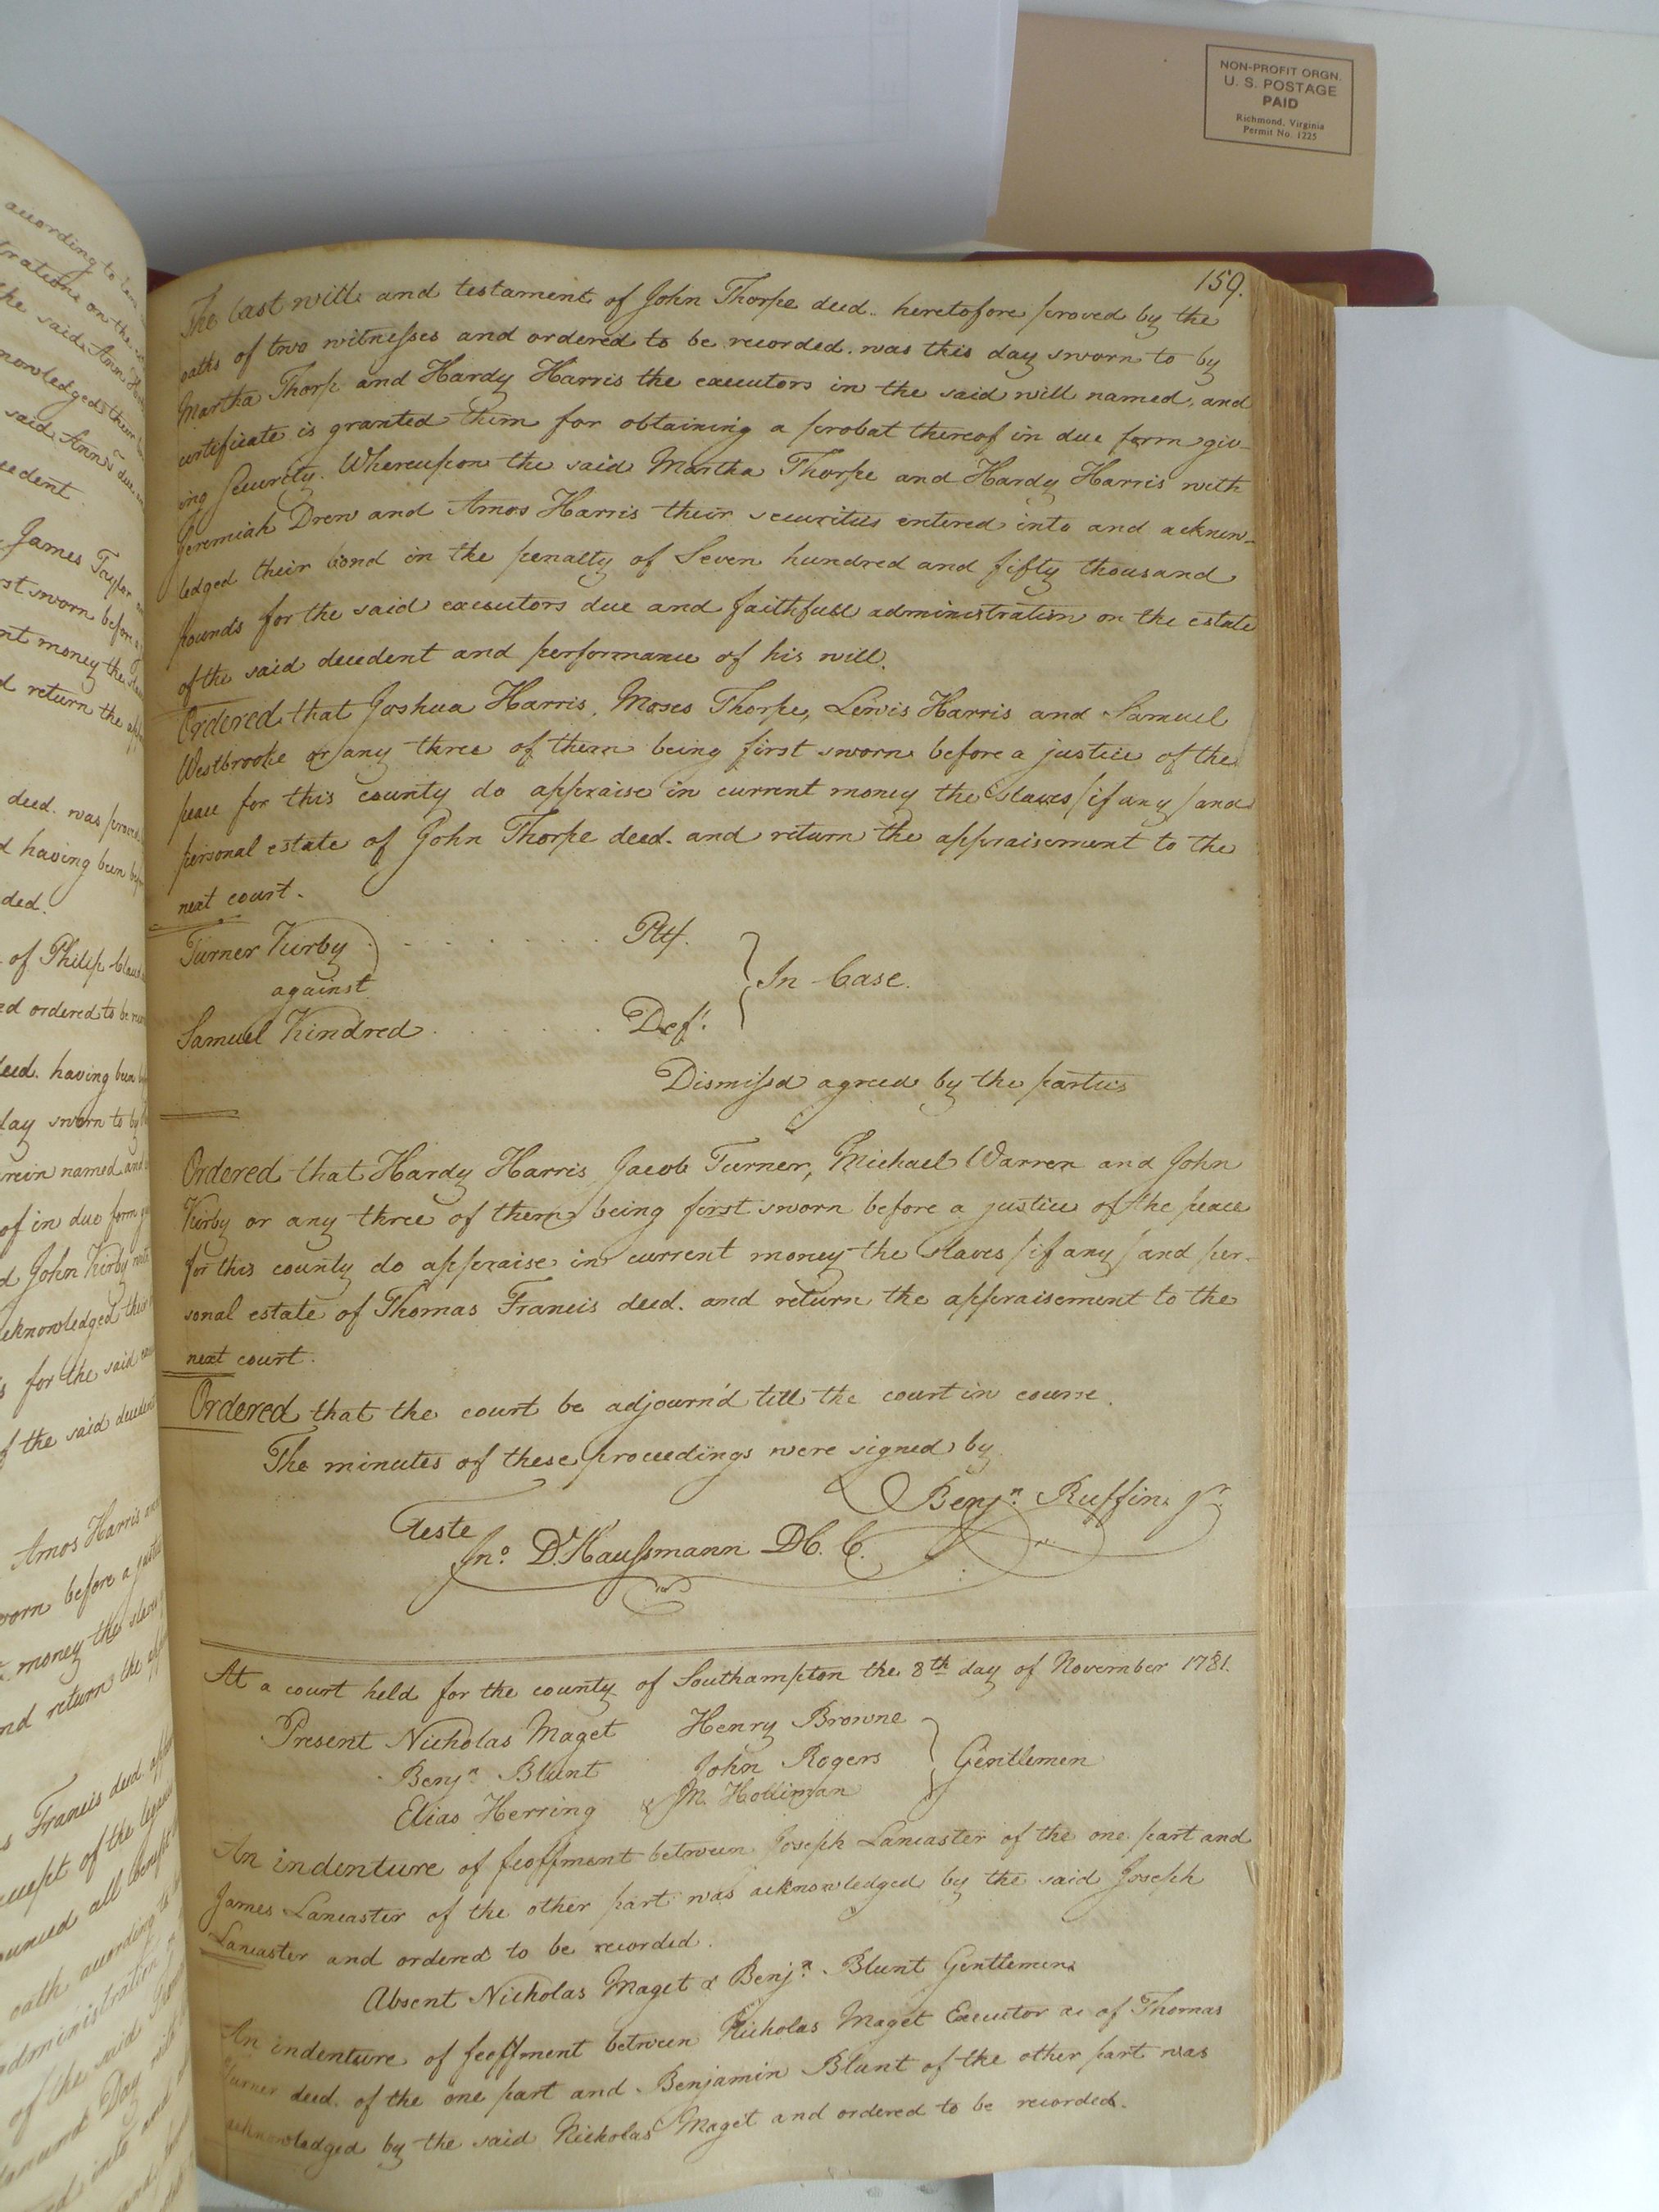 NON-PROFIT ORGN.
U. S. POSTAGE
PAID
Richmond, Virginia
Permit No. 1225
according to
on the
the said Ann
said Ann
James Taylor
st sworn before
nt money the
d return the
decd. was proved
d having been
ded.
of Philip
ed ordered to be
decd. having been
day sworn to by
rein named and
of in due form
d John Kirby with
acknowledged their
s for the said
of the said decedent
Amos Harris
orn before a justice
money the slaves
nd return the
s Francis decd.
of the
all
oath according to
administration
of the said
Day with
into and
159.
The last will and testament of John Thorpe decd. heretofore proved by the
oaths of two witnesses and ordered to be recorded. was this day sworn to by
Martha Thorp and Hardy Harris the executors in the said will named, and
certificate is granted them for obtaining a probat thereof in due form giv-
ing Security. Whereupon the said Martha Thorpe and Hardy Harris with
Jeremiah Drew and Amos Harris their securities entered into and acknow-
ledged their bond in the penalty of Seven hundred and fifty thousand
pounds for the said executors due and faithfull administration on the estate
of the said decedent and performance of his will.
Ordered that Joshua Harris, Moses Thorpe, Lewis Harris and Samuel
Westbrooke or any three of them being first sworn before a justice of the
peace for this county do appraise in current money the Slaves /if any/ and
personal estate of John Thorpe decd. and return the appraisement to the
next court.
Turner Kirby . . . . . . . . Plf.
against
In Case.
Samuel Kindred . . . . . . . Deft.
Dismissd agreed by the parties
Ordered that Hardy Harris Jacob Turner, Michael Warren and John
Kirby or any three of them being first sworn before a justice of the peace
for this county do appraise in current money the Slaves /if any/ and per-
sonal estate of Thomas Francis decd. and return the appraisement to the
next court.
Ordered that the court be adjourn'd till the court in course.
The minutes of these proceedings were signed by
Benjn. Ruffin Jr.
Teste
Jno. D. Haussmann D.C.C.
At a court held for the county of Southampton the 8th day of November 1781.
Present Nicholas Maget Henry Browne
Benjn. Blunt John Rogers Gentlemen
Elias Herring & M. Holliman
An indenture of feoffment between Joseph Lancaster of the one part and
James Lancaster of the other part was acknowledged by the said Joseph
Lancaster and ordered to be recorded.
Absent Nicholas Maget & Benjn. Blunt Gentlemen
An indenture of feoffment between Nicholas Maget Executor &c of Thomas
Turner decd. of the one part and Benjamin Blunt of the other part was
acknowledged by the said Nicholas Maget and ordered to be recorded.